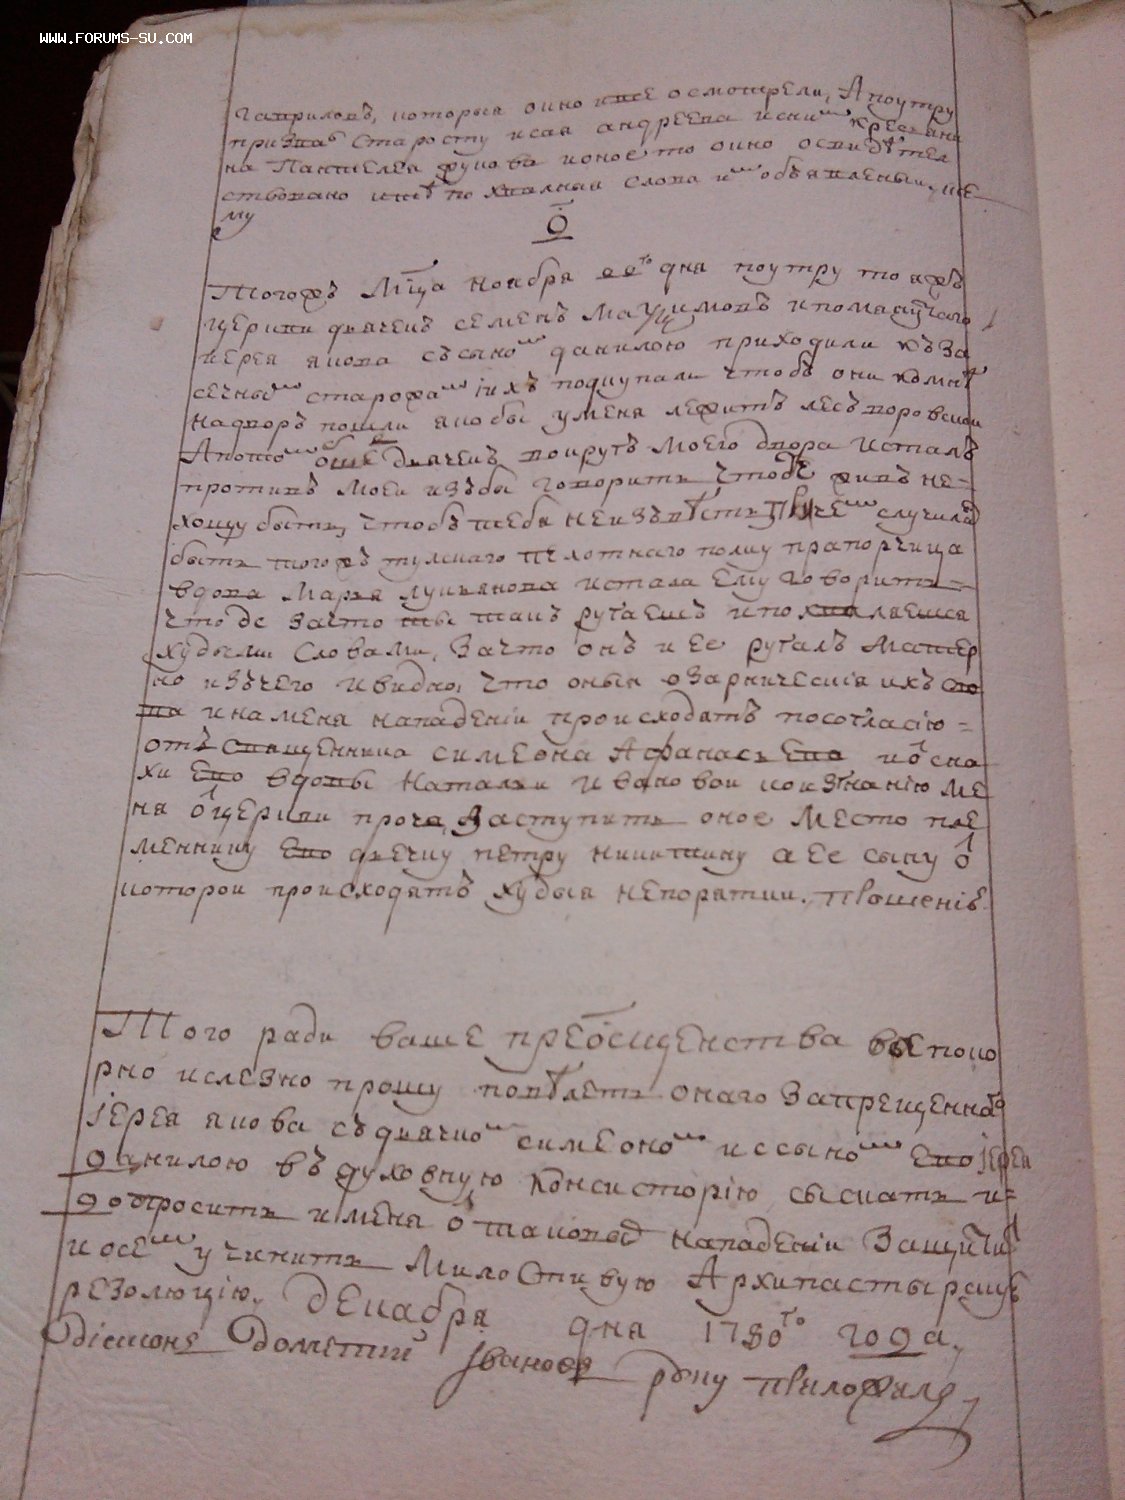 WWW.FORUMS-SU.COM
гавриловъ, которыя окно все осмотрели, А поутру
призвавъ старосту исая андреева и сним крестьяни
на Пантелея фукова и оное то окно освидѣтел
ствовано и по хвалныя слова им объявлены, и все
му
Ѳ
Тогожъ мца ноября дня поутру тояжъ
церкви дьячекъ семенъ Мазимовъ и помянутаго
иерея якова съ сыном данилою приходили къ за
сечным сторожам и ихъ подкупали чтобъ они комнѣ
на дворъ пошли якобы у меня лежитъ лесъ воровской
А потом дьячекъ вокругъ моего двора и сталъ
противъ моей избы говорить чтобъ живъ не
хощу быть, чтобъ тебя не извѣсть, при чем случилась
быть тогожъ тулскаго пехотнаго полку прапорчица
вдова Марья лукьянова и стала ему говорить
что де за что ты такъ ругаешъ и похваляешся
худыми словами, за что онъ и ее ругалъ матер
но изъ чего и видно, что оныя озарническия ихъ сло
ва и на меня нападении происходятъ по согласию
отъ священника симеона Афанасьева и сна
хи ево вдовы натальи ивановой и изгнанию ме
ня ѿ церкви прочь, заступить оное место пле
меннику ево дьечку петру никитину а ее сыну ѿ
которои происходятъ худыя непорятки. прошенiе
Того ради ваше преосщенства всепоко
рно и слезно прошу повѣлеть онаго запрещенного
iерея якова съ дьячком симеоном и с сыном ево iерея
данилою въ духовную консисторiю сыскать и
допросить и меня ѿ таковыя нападенiи защитить
и о сем учинить милостивую Архипастырскую
резолюцiю, декабря дня 1780го года,
Дiаконъ Дометий Ивановъ руку приложилъ